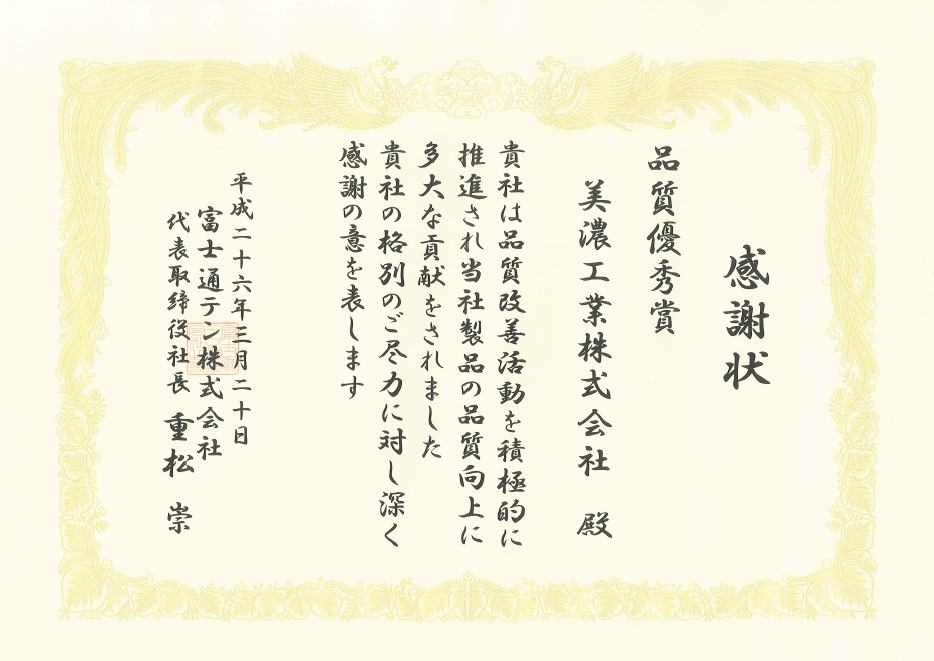 感謝状
品質優秀賞
美濃工業株式会社 殿
貴社は品質改善活動を積極的に
推進され当社製品の品質向上に
多大な貢献をされました
貴社の格別のご尽力に対し深く
感謝の意を表します
平成二十六年三月二十日
富士通テン株式会社
代表取締役社長 重松 崇